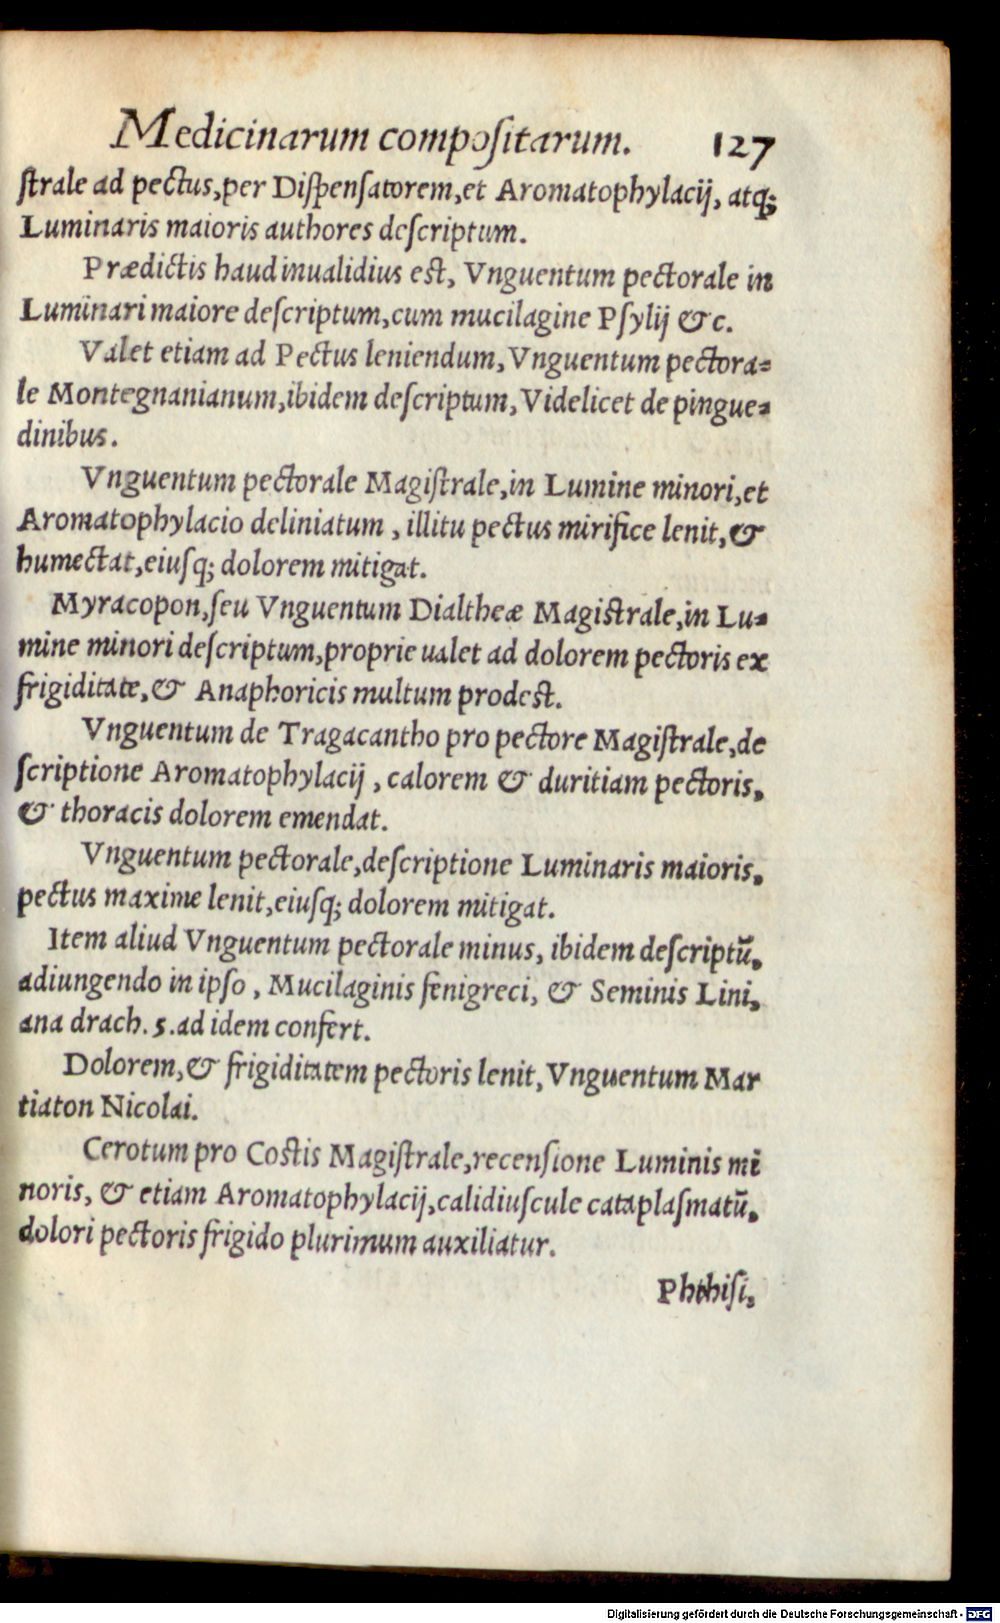 Medicinarum compoſitarum. 127
ſtrale ad pectus,per Diſpenſatorem,et Aromatophylacij, atq;
Luminaris maioris authores deſcriptum.
Prædictis haud inualidius est, Vnguentum pectorale in
Luminari maiore deſcriptum,cum mucilagine Pſylij &c.
Valet etiam ad Pectus leniendum, Vnguentum pectora-
le Montegnanianum,ibidem deſcriptum, Videlicet de pingue-
dinibus.
Vnguentum pectorale Magiſtrale,in Lumine minori,et
Aromatophylacio deliniatum , illitu pectus mirifice lenit,&
humectat,eiuſq; dolorem mitigat.
Myracopon,ſeu Vnguentum Dialtheæ Magistrale,in Lu-
mine minori deſcriptum,proprie ualet ad dolorem pectoris ex
frigiditate,& Anaphoricis multum prodest.
Vnguentum de Tragacantho pro pectore Magiſtrale,de
ſcriptione Aromatophylacij , calorem & duritiam pectoris,
& thoracis dolorem emendat.
Vnguentum pectorale,deſcriptione Luminaris maioris,
pectus maxime lenit,eiuſq; dolorem mitigat.
Item aliud Vnguentum pectorale minus, ibidem deſcriptū,
adiungendo in ipſo , Mucilaginis fenigreci, & Seminis Lini,
ana drach. 5. ad idem confert.
Dolorem,& frigiditatem pectoris lenit, Vnguentum Mar
tiaton Nicolai.
Cerotum pro Costis Magiſtrale,recenſione Luminis mi
noris, & etiam Aromatophylacij,calidiuſcule cataplaſmatū,
dolori pectoris frigido plurimum auxiliatur.
Phthiſi,
Digitalisierung gefördert durch die Deutsche Forschungsgemeinschaft - DFG